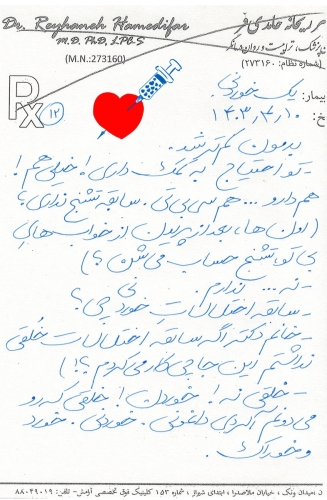 Dr. Reyhaneh Hamedifar
M.D. PhD, L.Ph.S
(M.N.:273160)
دکتر ریحانه حامدی فر
پزشک، تراپیست و روان‌درمانگر
(شماره نظام: ۲۷۳۱۶۰)
Rx
۱۲
بیمار: یک خوردنی
خ: ۱۴۰۳/۴/۱۰
بدمون کمتر شد.
- تو احتیاج به کمک داری! خیلی هم!
هم دارو ... هم سی بی تی. سابقه تشنج نداری؟
(اون ها، بعد از پریدن از خواب‌های
بی تو تشنج حساب می‌شن؟)
- نه ... ندارم.
- سابقه اختلالات خوردن چی؟
- خانم دکتر اگه سابقه اختلالات خُلقی
نداشتم این جا چی کار می‌کردم؟!)
- خُلقی نه! خوردن! خُلقی که رو
می‌دونم آلردی داغونی. خوردنی. خورد
و خوراک.
میدان ونک، خیابان ملاصدرا، ابتدای شیراز، شماره ۱۵۳ کلینیک فوق تخصصی آرامش - تلفن: ۸۸۰۴۹۰۱۹